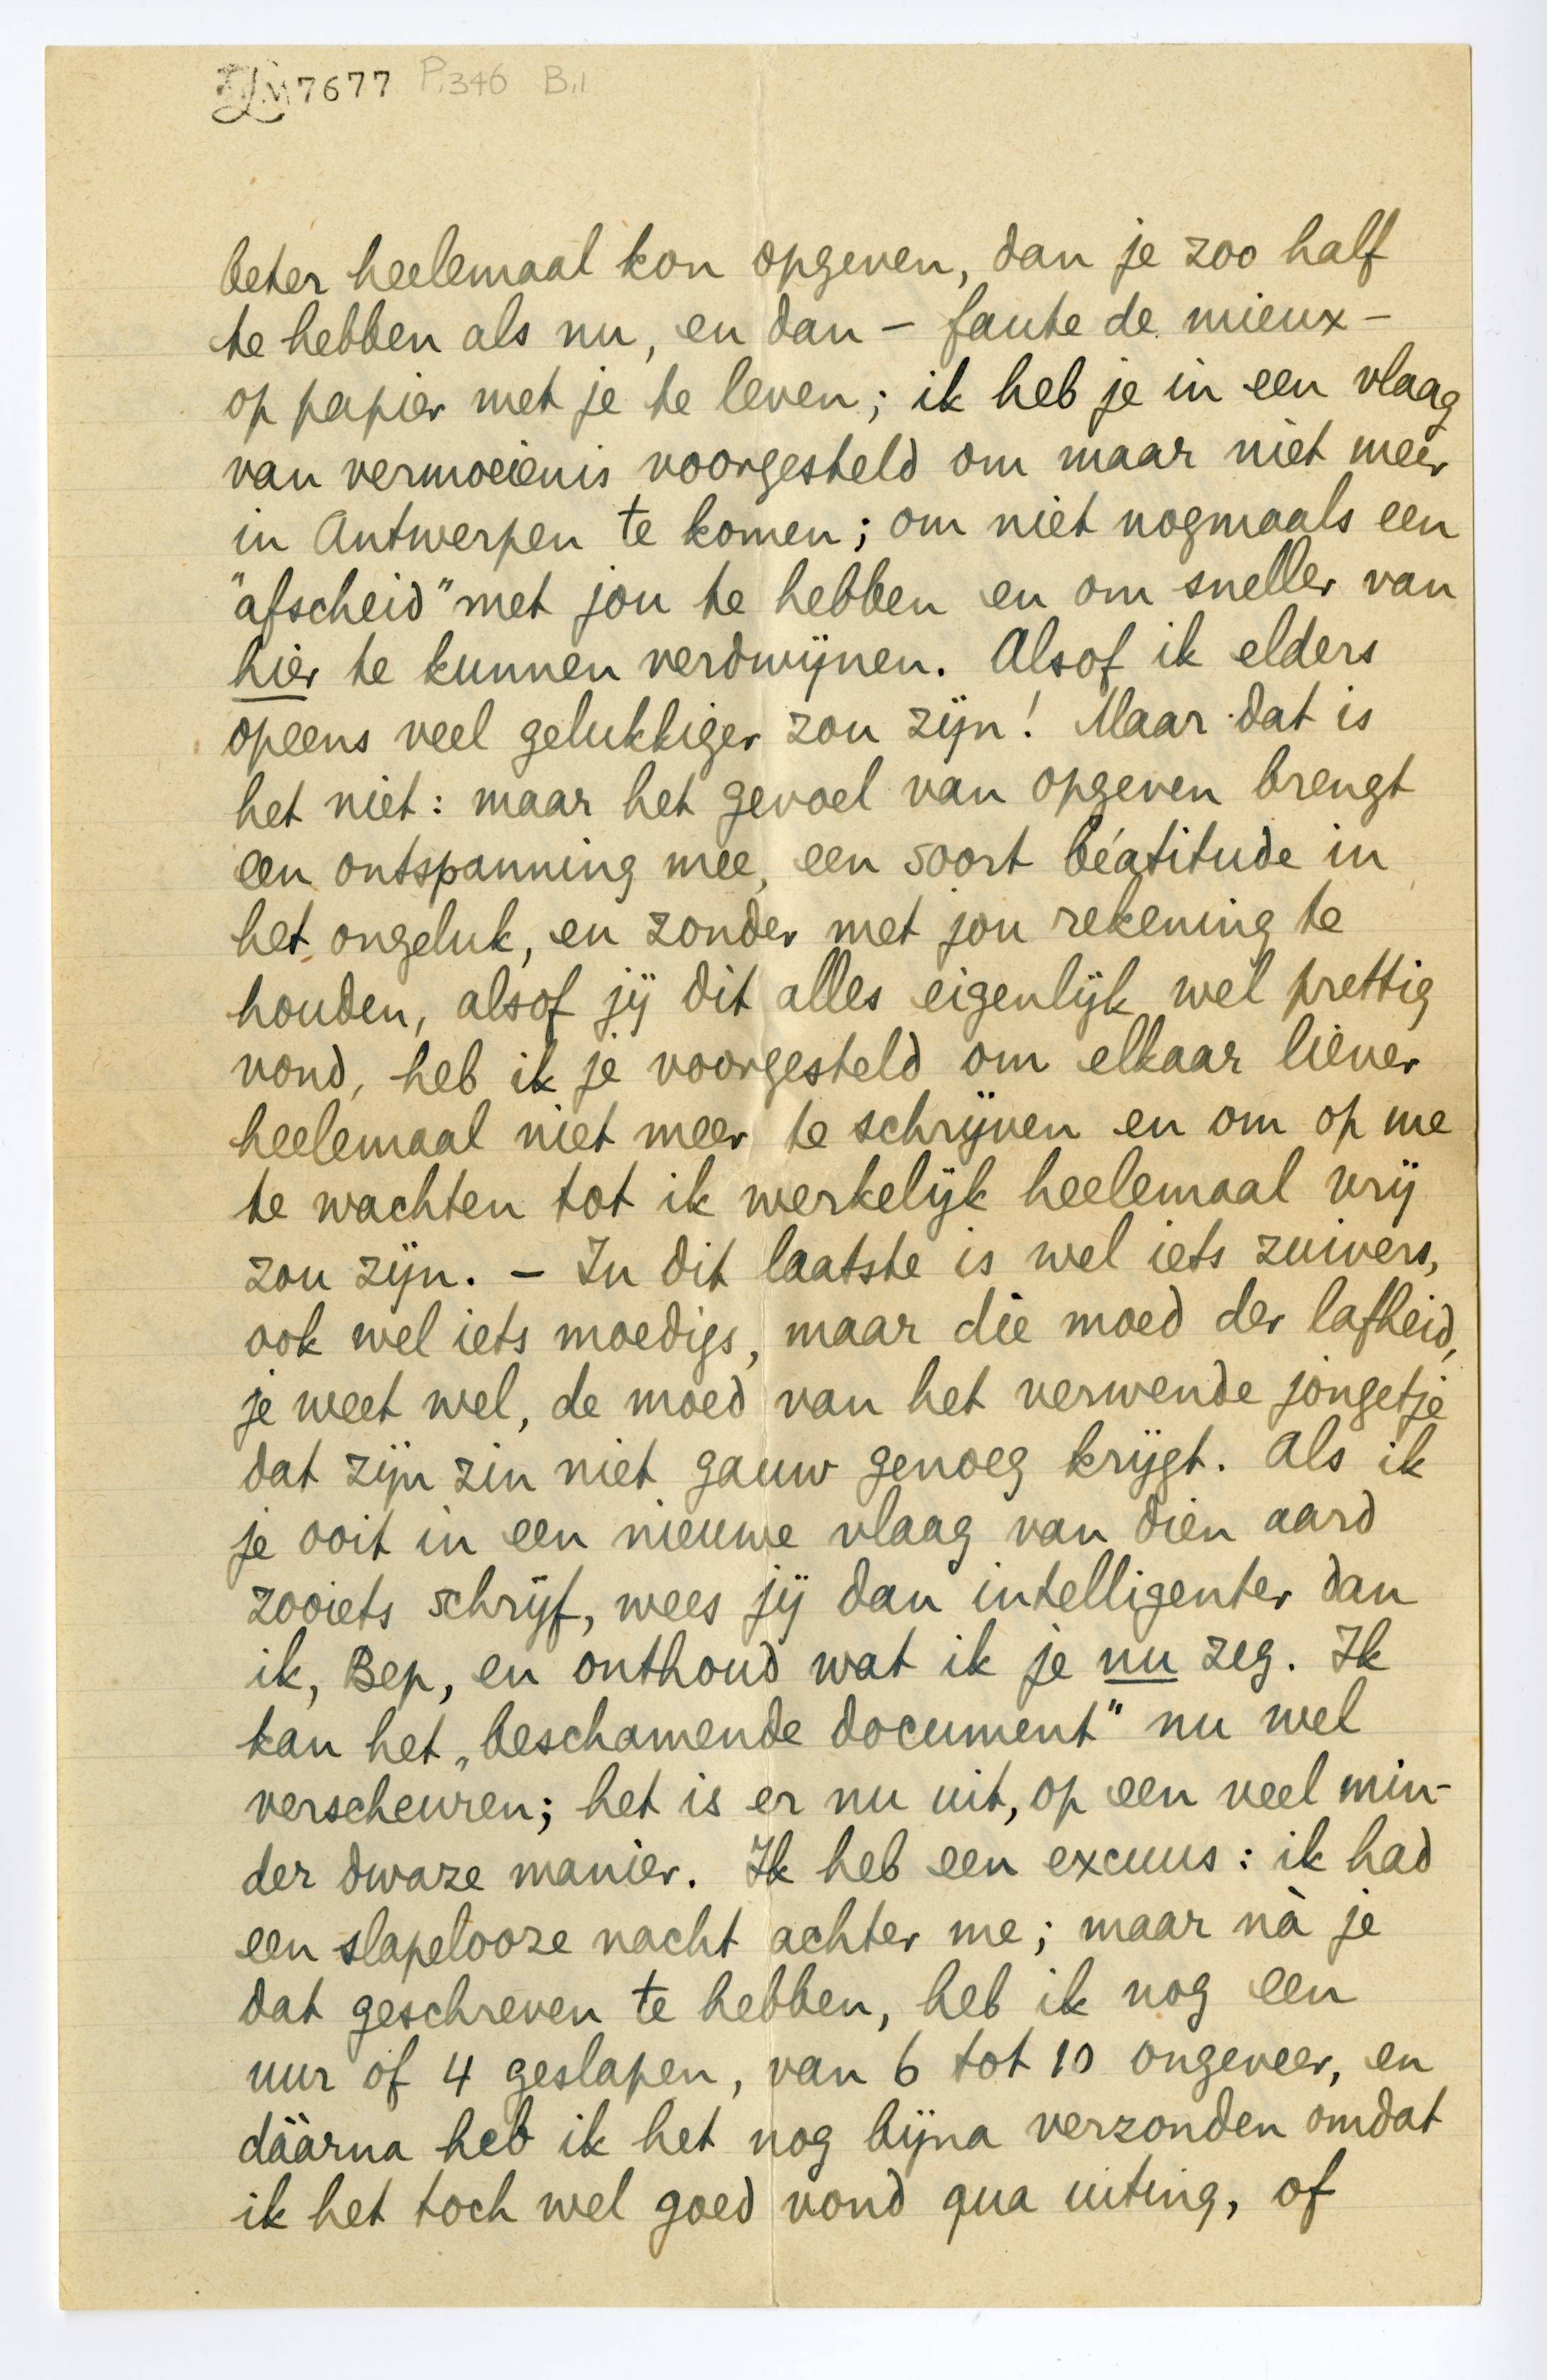 LM 7677 P.346 B.1
beter heelemaal kon opgeven, dan je zoo half
te hebben als nu, en dan – faute de mieux –
op papier met je te leven; ik heb je in een vlaag
van vermoeienis voorgesteld om maar niet meer
in Antwerpen te komen; om niet nogmaals een
"afscheid" met jou te hebben en om sneller van
hier te kunnen verdwijnen. Alsof ik elders
opeens veel gelukkiger zou zijn! Maar dat is
het niet: maar het gevoel van opgeven brengt
een ontspanning mee, een soort béatitude in
het ongeluk, en zonder met jou rekening te
houden, alsof jij dit alles eigenlijk wel prettig
vond, heb ik je voorgesteld om elkaar liever
heelemaal niet meer te schrijven en om op me
te wachten tot ik werkelijk heelemaal vrij
zou zijn. – In dit laatste is wel iets zuivers,
ook wel iets moedigs, maar die moed der lafheid,
je weet wel, de moed van het verwende jongetje
dat zijn zin niet gauw genoeg krijgt. Als ik
je ooit in een nieuwe vlaag van dien aard
zooiets schrijf, wees jij dan intelligenter dan
ik, Bep, en onthoud wat ik je nu zeg. Ik
kan het „beschamende document" nu wel
verscheuren; het is er nu uit, op een veel min-
der dwaze manier. Ik heb een excuus: ik had
een slapelooze nacht achter me; maar nà je
dat geschreven te hebben, heb ik nog een
uur of 4 geslapen, van 6 tot 10 ongeveer, en
dààrna heb ik het nog bijna verzonden omdat
ik het toch wel goed vond qua uiting, of